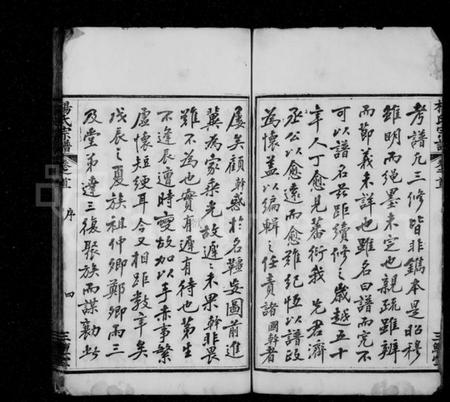 考譜凡三修皆非鐫本是昭穆
雖明而繩墨未定也親疏雖辨
而節義未詳也雖名曰譜而究不
可以譜名若距續修之歲越五十
年人丁愈見蕃衍我先君濟
丞公以愈遠而愈難紀恆以譜政
為懷蓋以編輯之任責諸國幹者
屢矣顧幹慼於名韁妄圖前進
冀為家乘光故遲遲未果幹非畏
難不為也實有遲有待也第生
不逢辰遭時變故加以手赤事繁
虛懷短綆耳今又相距數年矣
戊辰之夏族祖仲卿鄭卿而三
及堂弟達三復聚族而謀勸此
楊氏宗譜
卷首
序
四
三鱣堂